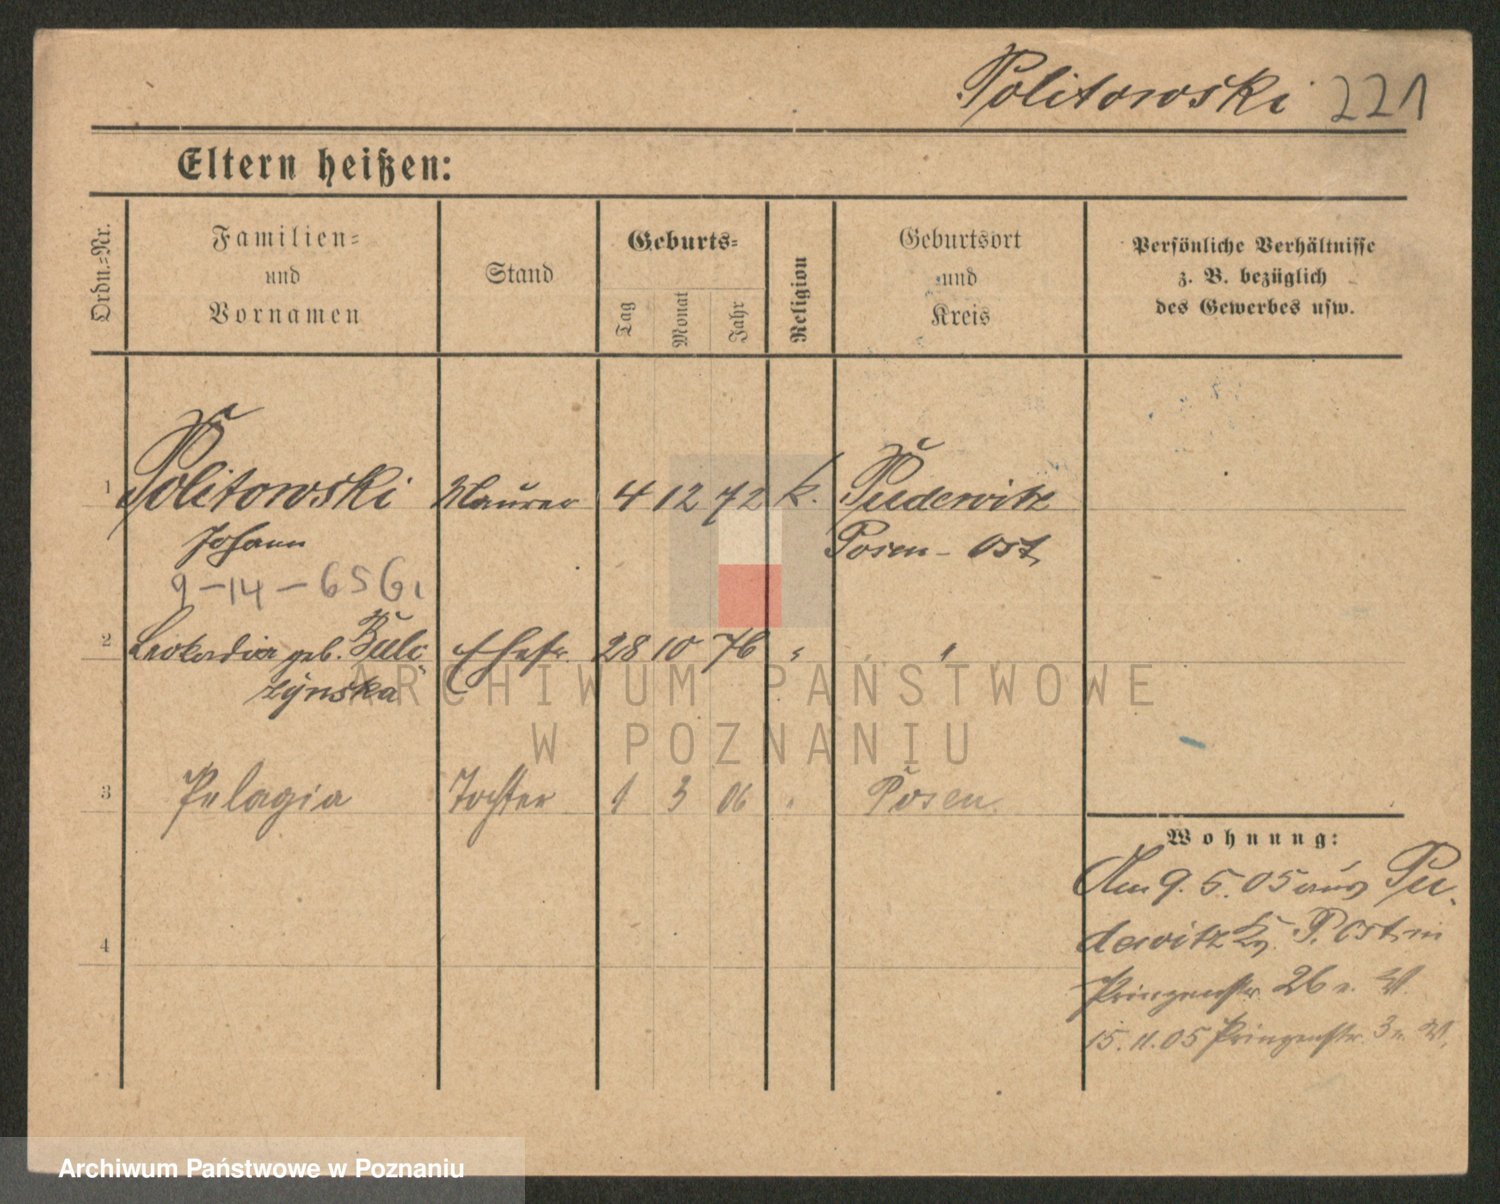 Politowski 221
Eltern heißen:
Ordn.-Nr.
Familien-
und
Vornamen
Stand
Geburts-
Tag
Monat
Jahr
Religion
Geburtsort
und
Kreis
Persönliche Verhältnisse
z. B. bezüglich
des Gewerbes usw.
1 Politowski Maurer 4 12 72 k. Pudewitz
Johann Posen-Ost
9-14-656
2 Leokadia geb. Bulc Ehefr. 28 10 76 " "
zynska
3 Pelagia Tochter 1 3 06 " Posen
4
Wohnung:
Am 9.5.05 aus Pu-
dewitz P. Ost in
Prinzenstr. 26
15.11.05 Prinzenstr. 3
ARCHIWUM PAŃSTWOWE
W POZNANIU
Archiwum Państwowe w Poznaniu